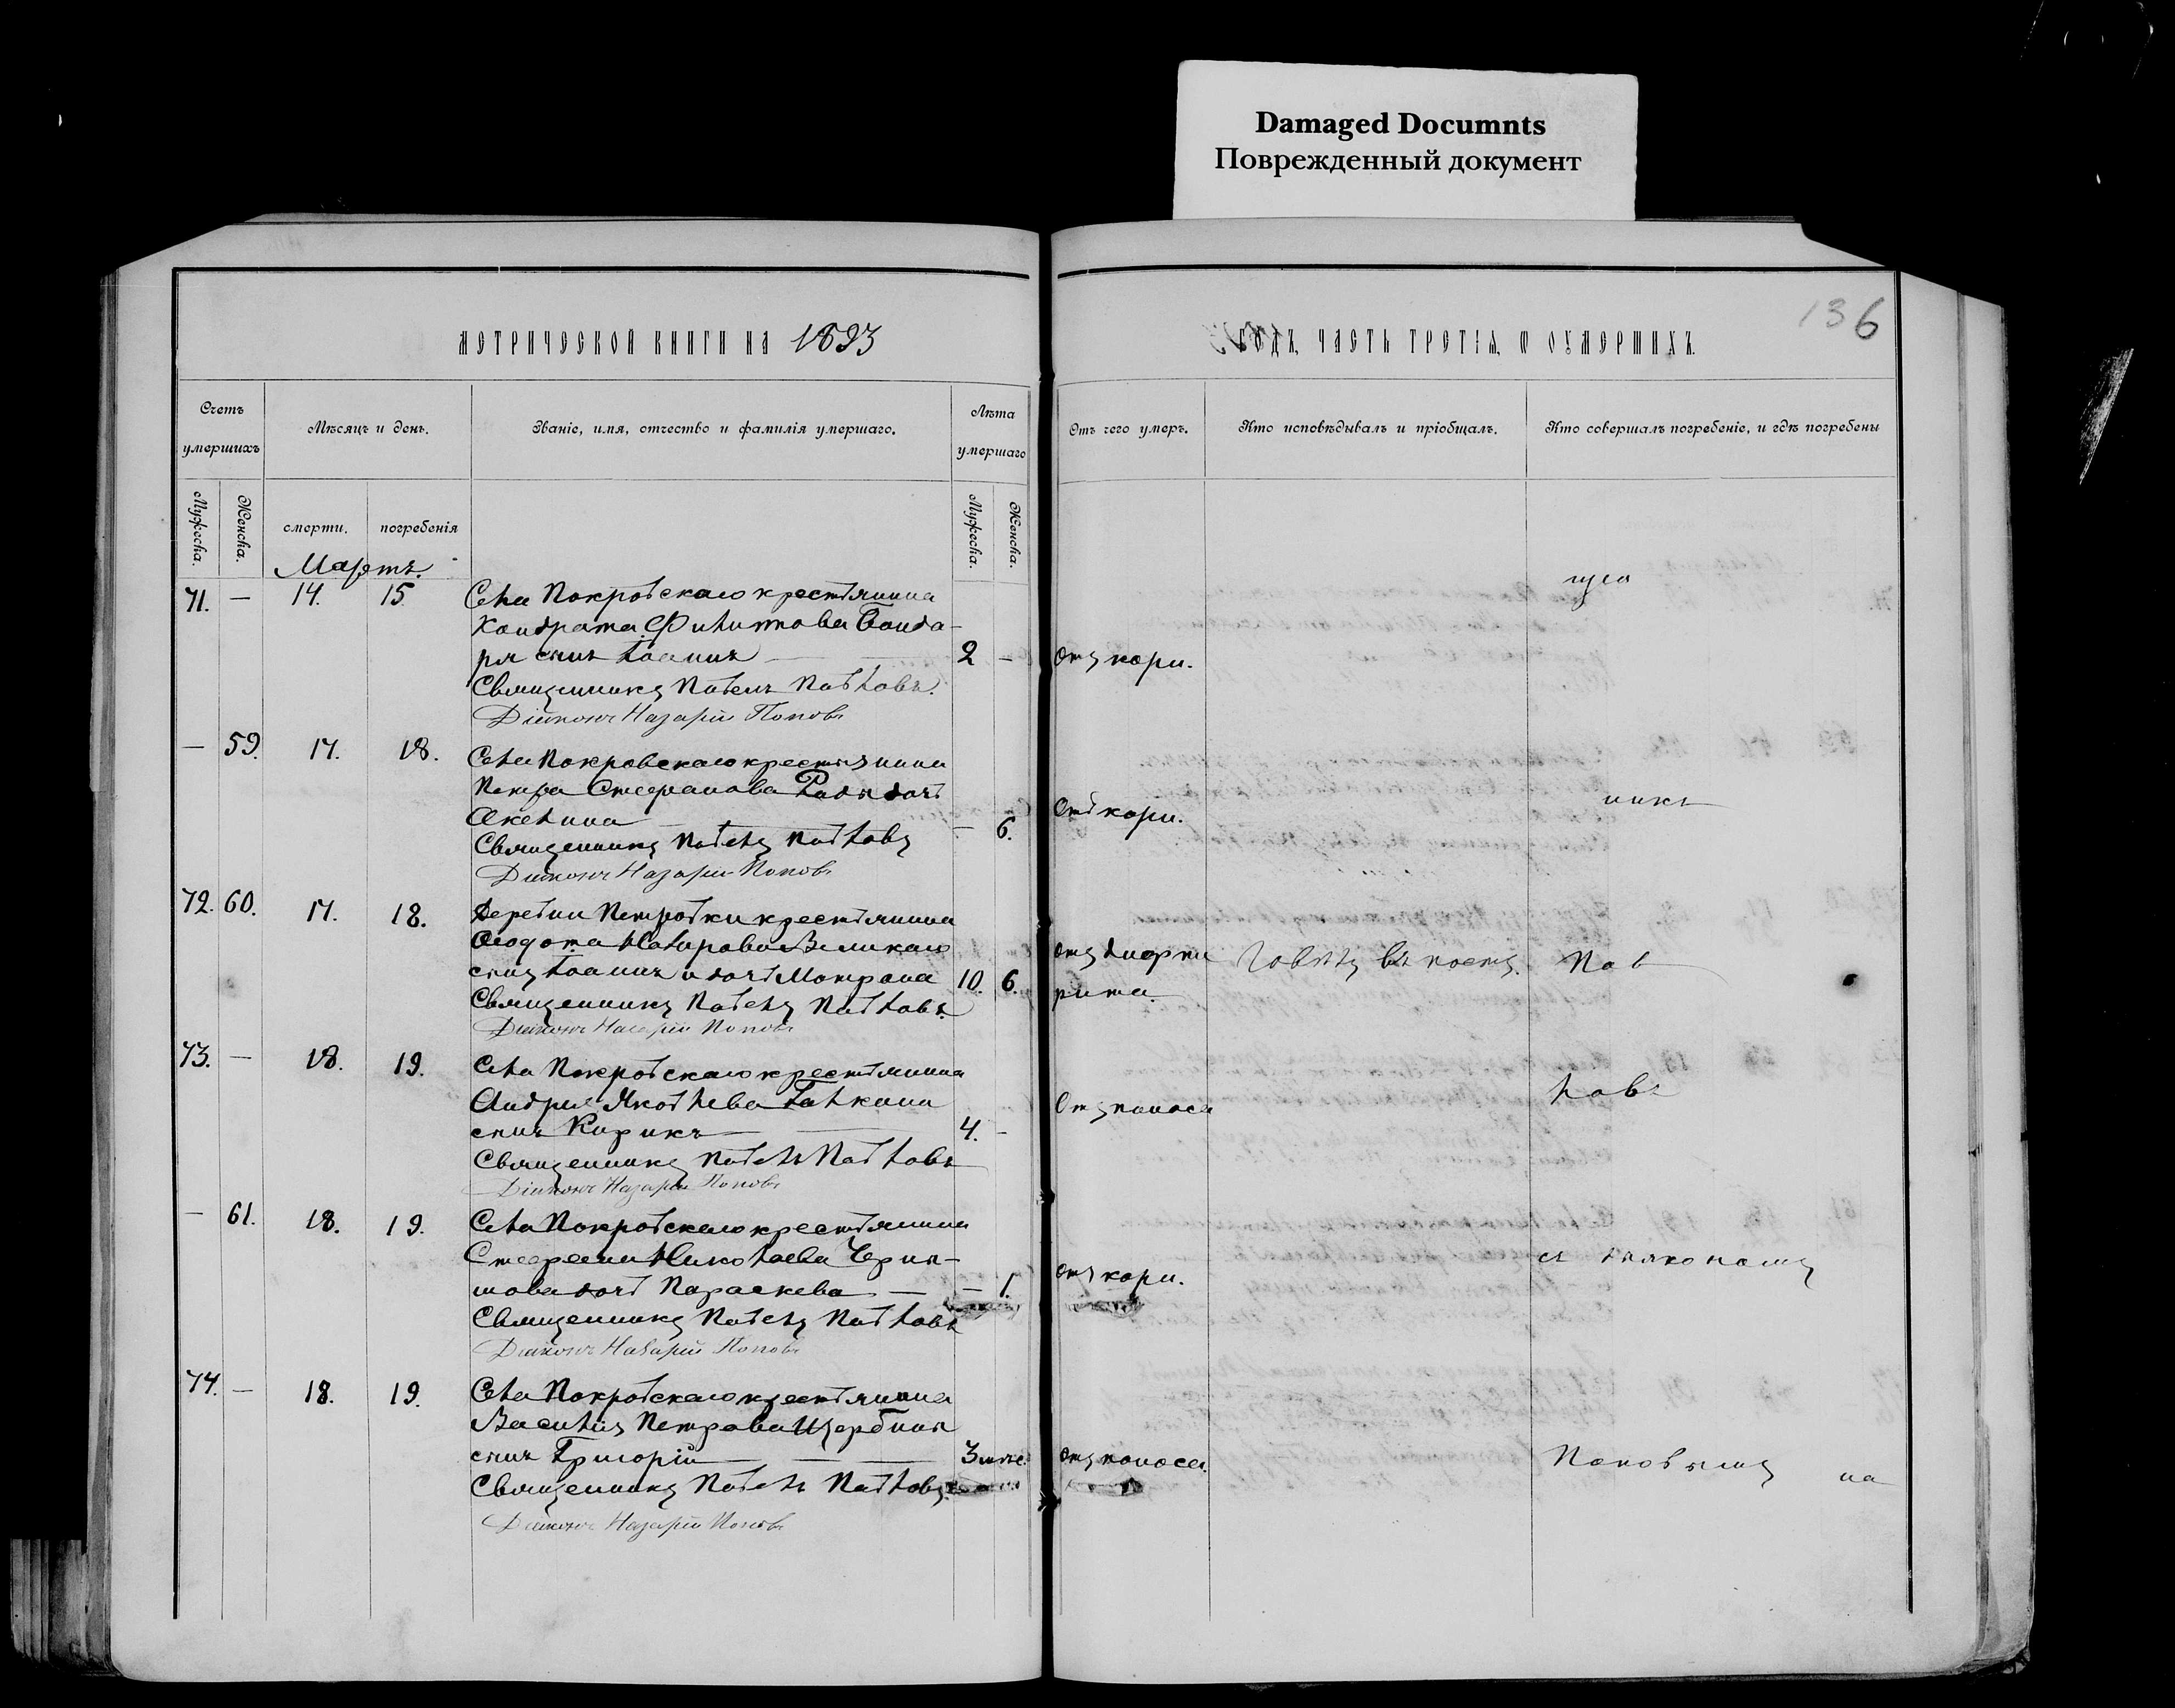 Damaged Documnts
Поврежденный документ
136
МЕТРИЧЕСКОЙ КНИГИ НА 1893
ГОДЪ, ЧАСТЬ ТРЕТІЯ, О ОУМЕРШИХЪ.
Счетъ умершихъ
Мѣсяцъ и день.
Званіе, имя, отчество и фамилія умершаго.
Лѣта умершаго
Отъ чего умеръ.
Кто исповѣдывалъ и пріобщалъ.
Кто совершалъ погребеніе, и гдѣ погребены
Мужеска.
Женска.
смерти.
погребенія
Мужеска.
Женска.
Мартъ.
71. — 14. 15. Села Покровскаго крестьянина
Кондрата Филиппова Бонда-
ря сынъ Іоаннъ — 2 — Отъ кори.
Священникъ Павелъ Павловъ.
Діаконъ Назарій Поповъ
— 59. 17. 18. Села Покровскаго крестьянина
Петра Стефанова дочь
Акелина — — 6. Отъ кори.
никъ
Священникъ Павелъ Павловъ
Діаконъ Назарій Поповъ
72. 60. 17. 18. Деревни Петровки крестьянина
Ѳеодота Великаго
сынъ Іоаннъ и дочь Матрона 10. 6. Отъ дифте
рита. Говѣлъ въ постъ. Пав
Священникъ Павелъ Павловъ.
Діаконъ Назарій Поповъ
73. — 18. 19. Села Покровскаго крестьянина
Андрея Яковлева Галкина
сынъ Кирикъ — 4. — Отъ поноса
ловъ
Священникъ Павелъ Павловъ
Діаконъ Назарій Поповъ
— 61. 18. 19. Села Покровскаго крестьянина
Стефана Николаева Черны-
шова дочь Параскева — — 1. Отъ кори.
съ діакономъ
Священникъ Павелъ Павловъ
Діаконъ Назарій Поповъ
74. — 18. 19. Села Покровскаго крестьянина
Василія Петрова Щербины
сынъ Григорій — — 3 мѣс. Отъ поноса.
Поповымъ на
Священникъ Павелъ Павловъ
Діаконъ Назарій Поповъ